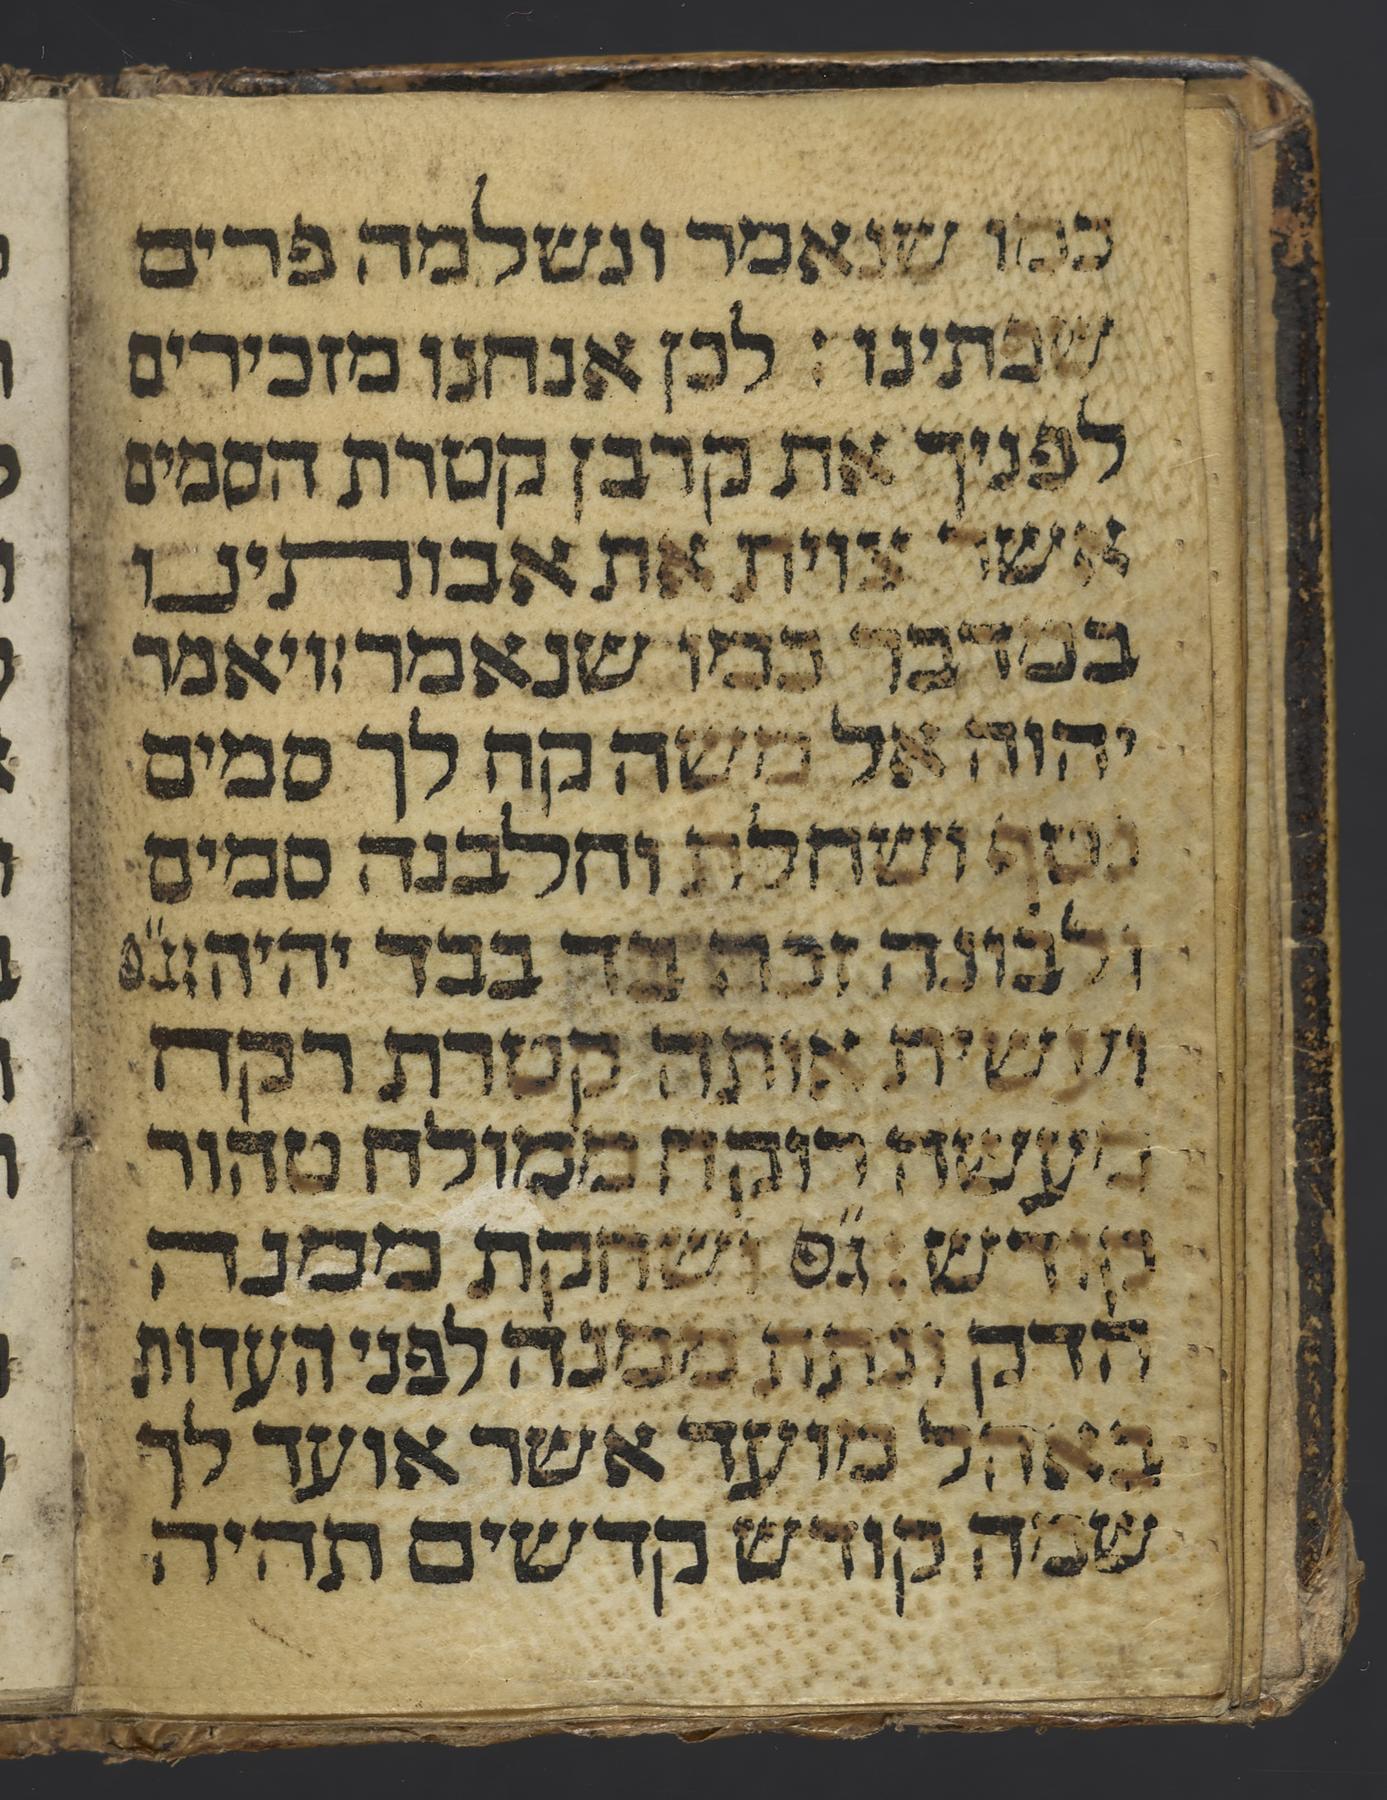 כמו שנאמר ונשלמה פרים
שפתינו : לכן אנחנו מזכירים
לפניך את קרבן קטרת הסמים
אשר צוית את אבותינו
במדבר כמו שנאמר׃ויאמר
יהוה אל משה קח לך סמים
נטף ושחלת וחלבנה סמים
ולבונה זכה בד בבד יהיה׃ונ״פ
ועשית אותה קטרת רקח
מעשה רוקח ממולח טהור
קודש : ג״פ ושחקת ממנה
הדק ונתת ממנה לפני העדות
באהל מועד אשר אועד לך
שמה קודש קדשים תהיה